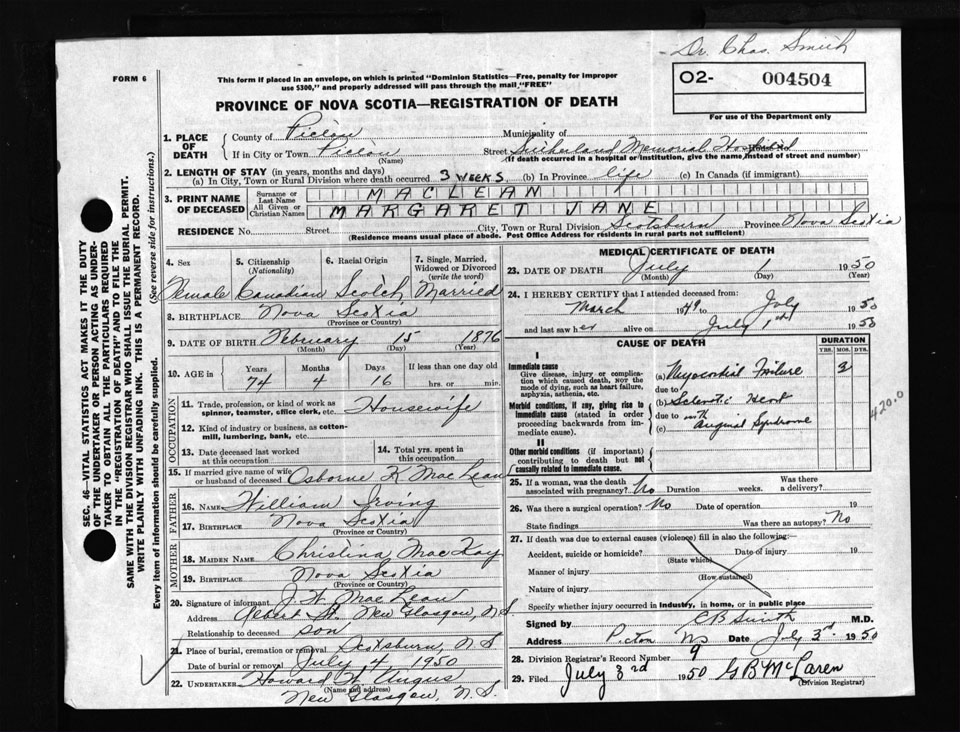 Dr. Chas. Smith
FORM 6
This form if placed in an envelope, on which is printed "Dominion Statistics—Free, penalty for improper
use $300," and properly addressed will pass through the mail, "FREE"
O2- 004504
PROVINCE OF NOVA SCOTIA—REGISTRATION OF DEATH
For use of the Department only
1. PLACE OF DEATH
County of Pictou Municipality
If in City or Town Pictou Street Sutherland Memorial Hospital
(Name) (If death occurred in a hospital or institution, give the name instead of street and number)
2. LENGTH OF STAY (in years, months and days)
(a) In City, Town or Rural Division where death occurred 3 WEEKS (b) In Province life (c) In Canada (if immigrant)
3. PRINT NAME OF DECEASED
Surname or Last Name MACLEAN
All Given or Christian Names MARGARET JANE
RESIDENCE No. Street City, Town or Rural Division Scotsburn Province Nova Scotia
(Residence means usual place of abode. Post Office Address for residents in rural parts not sufficient)
4. Sex 5. Citizenship (Nationality) 6. Racial Origin 7. Single, Married, Widowed or Divorced (write the word)
Female Canadian Scotch Married
8. BIRTHPLACE Nova Scotia
(Province or Country)
9. DATE OF BIRTH February 15 1876
(Month) (Day) (Year)
10. AGE Years Months Days If less than one day old
74 4 16 hrs. or min.
OCCUPATION
11. Trade, profession, or kind of work as
spinner, teamster, office clerk, etc. Housewife
12. Kind of industry or business, as cotton-
mill, lumbering, bank, etc.
13. Date deceased last worked
at this occupation
14. Total yrs. spent in
this occupation
15. If married give name of wife
or husband of deceased Osborne K MacLean
FATHER
16. NAME William Irving
17. BIRTHPLACE Nova Scotia
(Province or Country)
MOTHER
18. MAIDEN NAME Christina MacKay
19. BIRTHPLACE Nova Scotia
(Province or Country)
20. Signature of informant J. W. MacLean
Address Albert St. New Glasgow, N S
Relationship to deceased son
21. Place of burial, cremation or removal Scotsburn, N S
Date of burial or removal July 4 1950
22. UNDERTAKER Howard W Angus
(Name and address)
New Glasgow, N. S.
MEDICAL CERTIFICATE OF DEATH
23. DATE OF DEATH July 1 1950
(Month) (Day) (Year)
24. I HEREBY CERTIFY that I attended deceased from:
March 1949 to July 1950
and last saw her alive on July 1st 1950
CAUSE OF DEATH
DURATION
YRS. MOS. DYS.
I
Immediate cause
Give disease, injury or complication
which caused death, NOT the
mode of dying, such as heart failure,
asphyxia, asthenia, etc.
(a) Myocardial Failure 3
due to
Morbid conditions, if any, giving rise to
immediate cause (stated in order
proceeding backwards from immediate cause).
(b) Sclerotic Heart
due to with
(c) Anginal Syndrome
420.0
II
Other morbid conditions (if important)
contributing to death but not
causally related to immediate cause.
25. If a woman, was the death
associated with pregnancy? No Duration weeks. Was there
a delivery?
26. Was there a surgical operation? No Date of operation 19
State findings Was there an autopsy? No
27. If death was due to external causes (violence) fill in also the following:
Accident, suicide or homicide? Date of injury 19
(State which)
Manner of injury
(How sustained)
Nature of injury
Specify whether injury occurred in industry, in home, or in public place
Signed by C B Smith M.D.
Address Pictou NS Date July 3rd 1950
28. Division Registrar's Record Number 9
29. Filed July 3rd 1950 G B McLaren
(Division Registrar)
SEC. 46—VITAL STATISTICS ACT MAKES IT THE DUTY
OF THE UNDERTAKER OR PERSON ACTING AS UNDER-
TAKER TO OBTAIN ALL THE PARTICULARS REQUIRED
IN THE "REGISTRATION OF DEATH" AND TO FILE THE
SAME WITH THE DIVISION REGISTRAR WHO SHALL ISSUE THE BURIAL PERMIT.
WRITE PLAINLY WITH UNFADING INK. THIS IS A PERMANENT RECORD.
Every item of information should be carefully supplied. (See reverse side for instructions.)